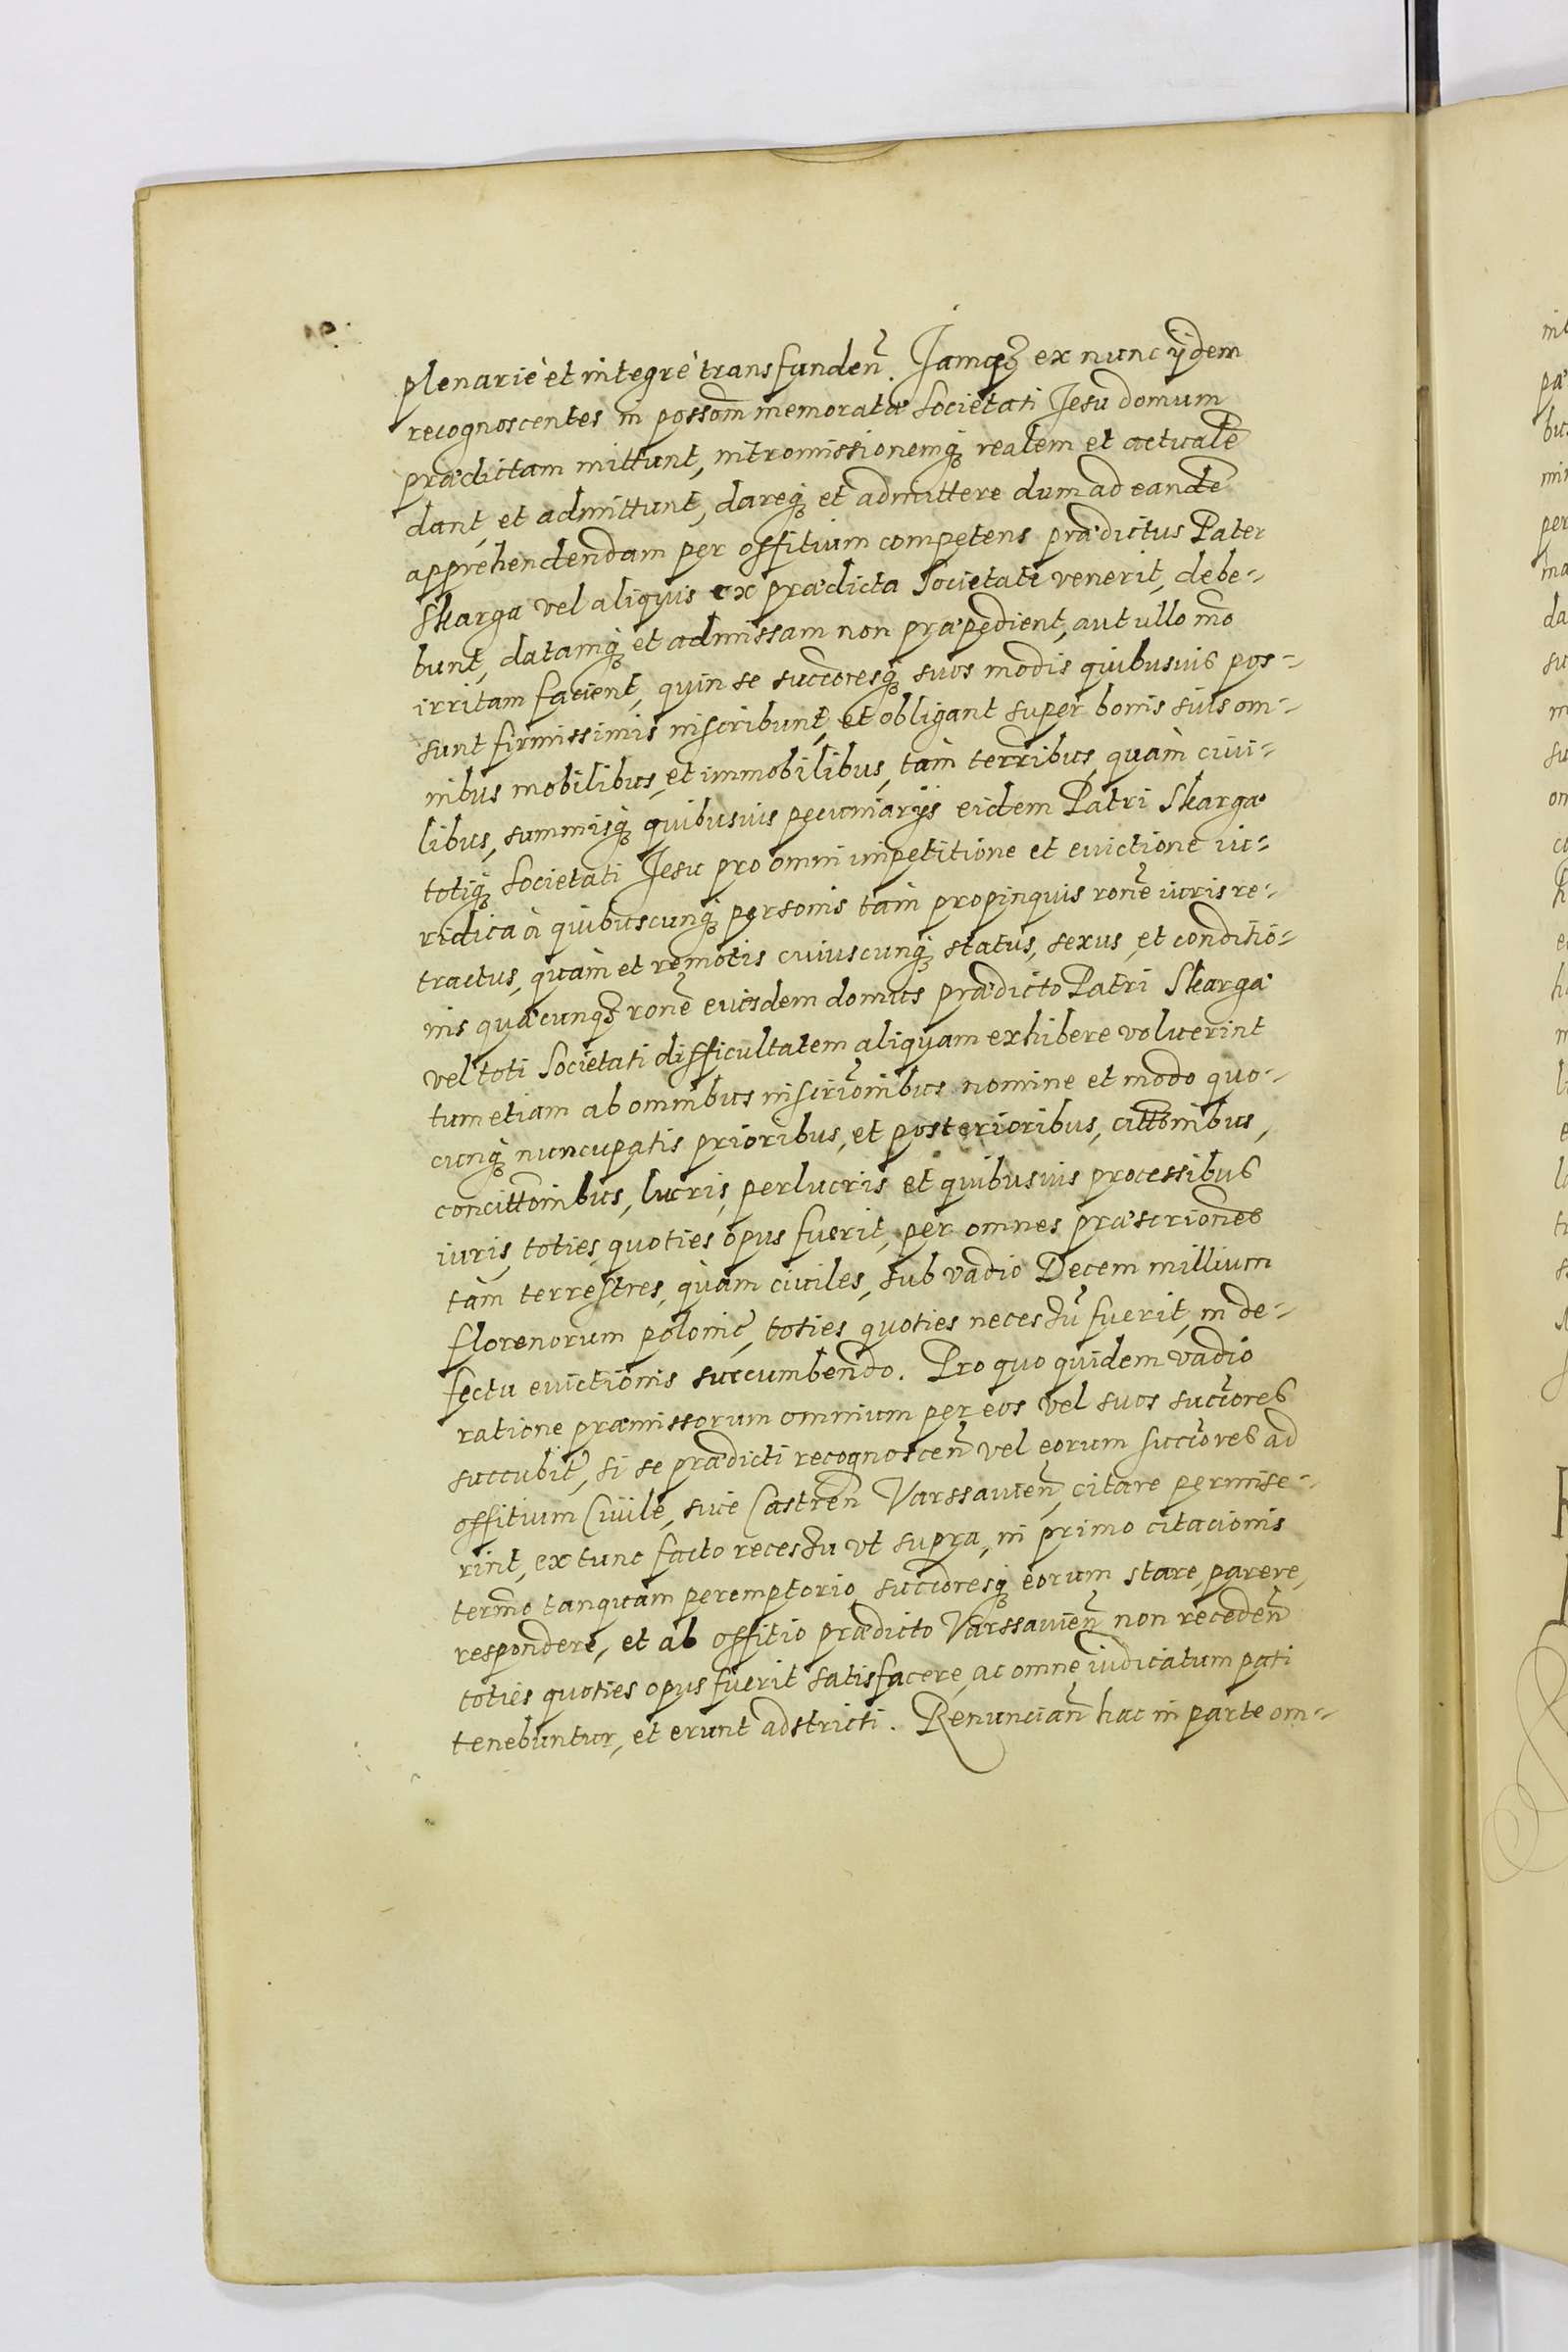 plenariè et integrè transfunden̄. Jamq̃ȝ ex nunc ijdem
recognoscentes in possom̄ memoratæ Societati Jesu domum
prædictam mittunt, intromissionemq̨ realem et actualē
dant, et admittunt, dareq̨ et admittere dum ad eandē
apprehendendam per offitium competens prædictus Pater
Skarga vel aliquis ex prædicta Societate venerit, debe=
bunt, datamq̨ et admissam non præpedient, aut ullo mō
irritam facient, quin se succoresq̨ suos modis quibusuis pos=
sunt firmissimis inscribunt, et obligant super bonis suis om=
nibus mobilibus, et immobilibus, tàm terribus, quàm ciui=
libus, summisq̨ quibusuis pecuniarijs eidem Patri Skargæ
totiq̨ Societati Jesu pro omni impetitione et euictione iu=
ridica à quibuscunq̨ personis tàm propinquis ronē iuris re=
tractus, quàm et remotis cuiuscunq̨ status, sexus, et conditio=
nis quacunqȝ ronē eiusdem domus prædicto Patri Skargæ
vel toti Societati difficultatem aliquam exhibere voluerint
tum etiam ab omnibus inscrionibus nomine et modo quo=
cunq̨ nuncupatis prioribus, et posterioribus, cittonibus,
concittonibus, lucris, perlucris et quibusuis processibus
iuris, toties quoties opus fuerit, per omnes præscriones
tàm terrestres, quàm ciuiles, sub vadio Decem millium
florenorum polonic̃, toties quoties necessū fuerit, in de=
fectu euictionis succumbendo. Pro quo quidem vadio
ratione præmissorum omnium per eos vel suos succores
succubit̃, si se prædicti recognoscen̄ vel eorum succores ad
offitium Ciuile, siue Castren̄ Varssauien̄, citare permise=
rint, ex tunc facto recessu vt supra, in primo citacionis
termo tanquam peremptorio succoresq̨ eorum stare, parere,
respondere, et ab offitio prædicto Varssauien̄ non receden̄
toties quoties opus fuerit satisfacere, ac omne iudicatum pati
tenebuntur, et erunt adstricti. Renuncian̄ hac in parte om=